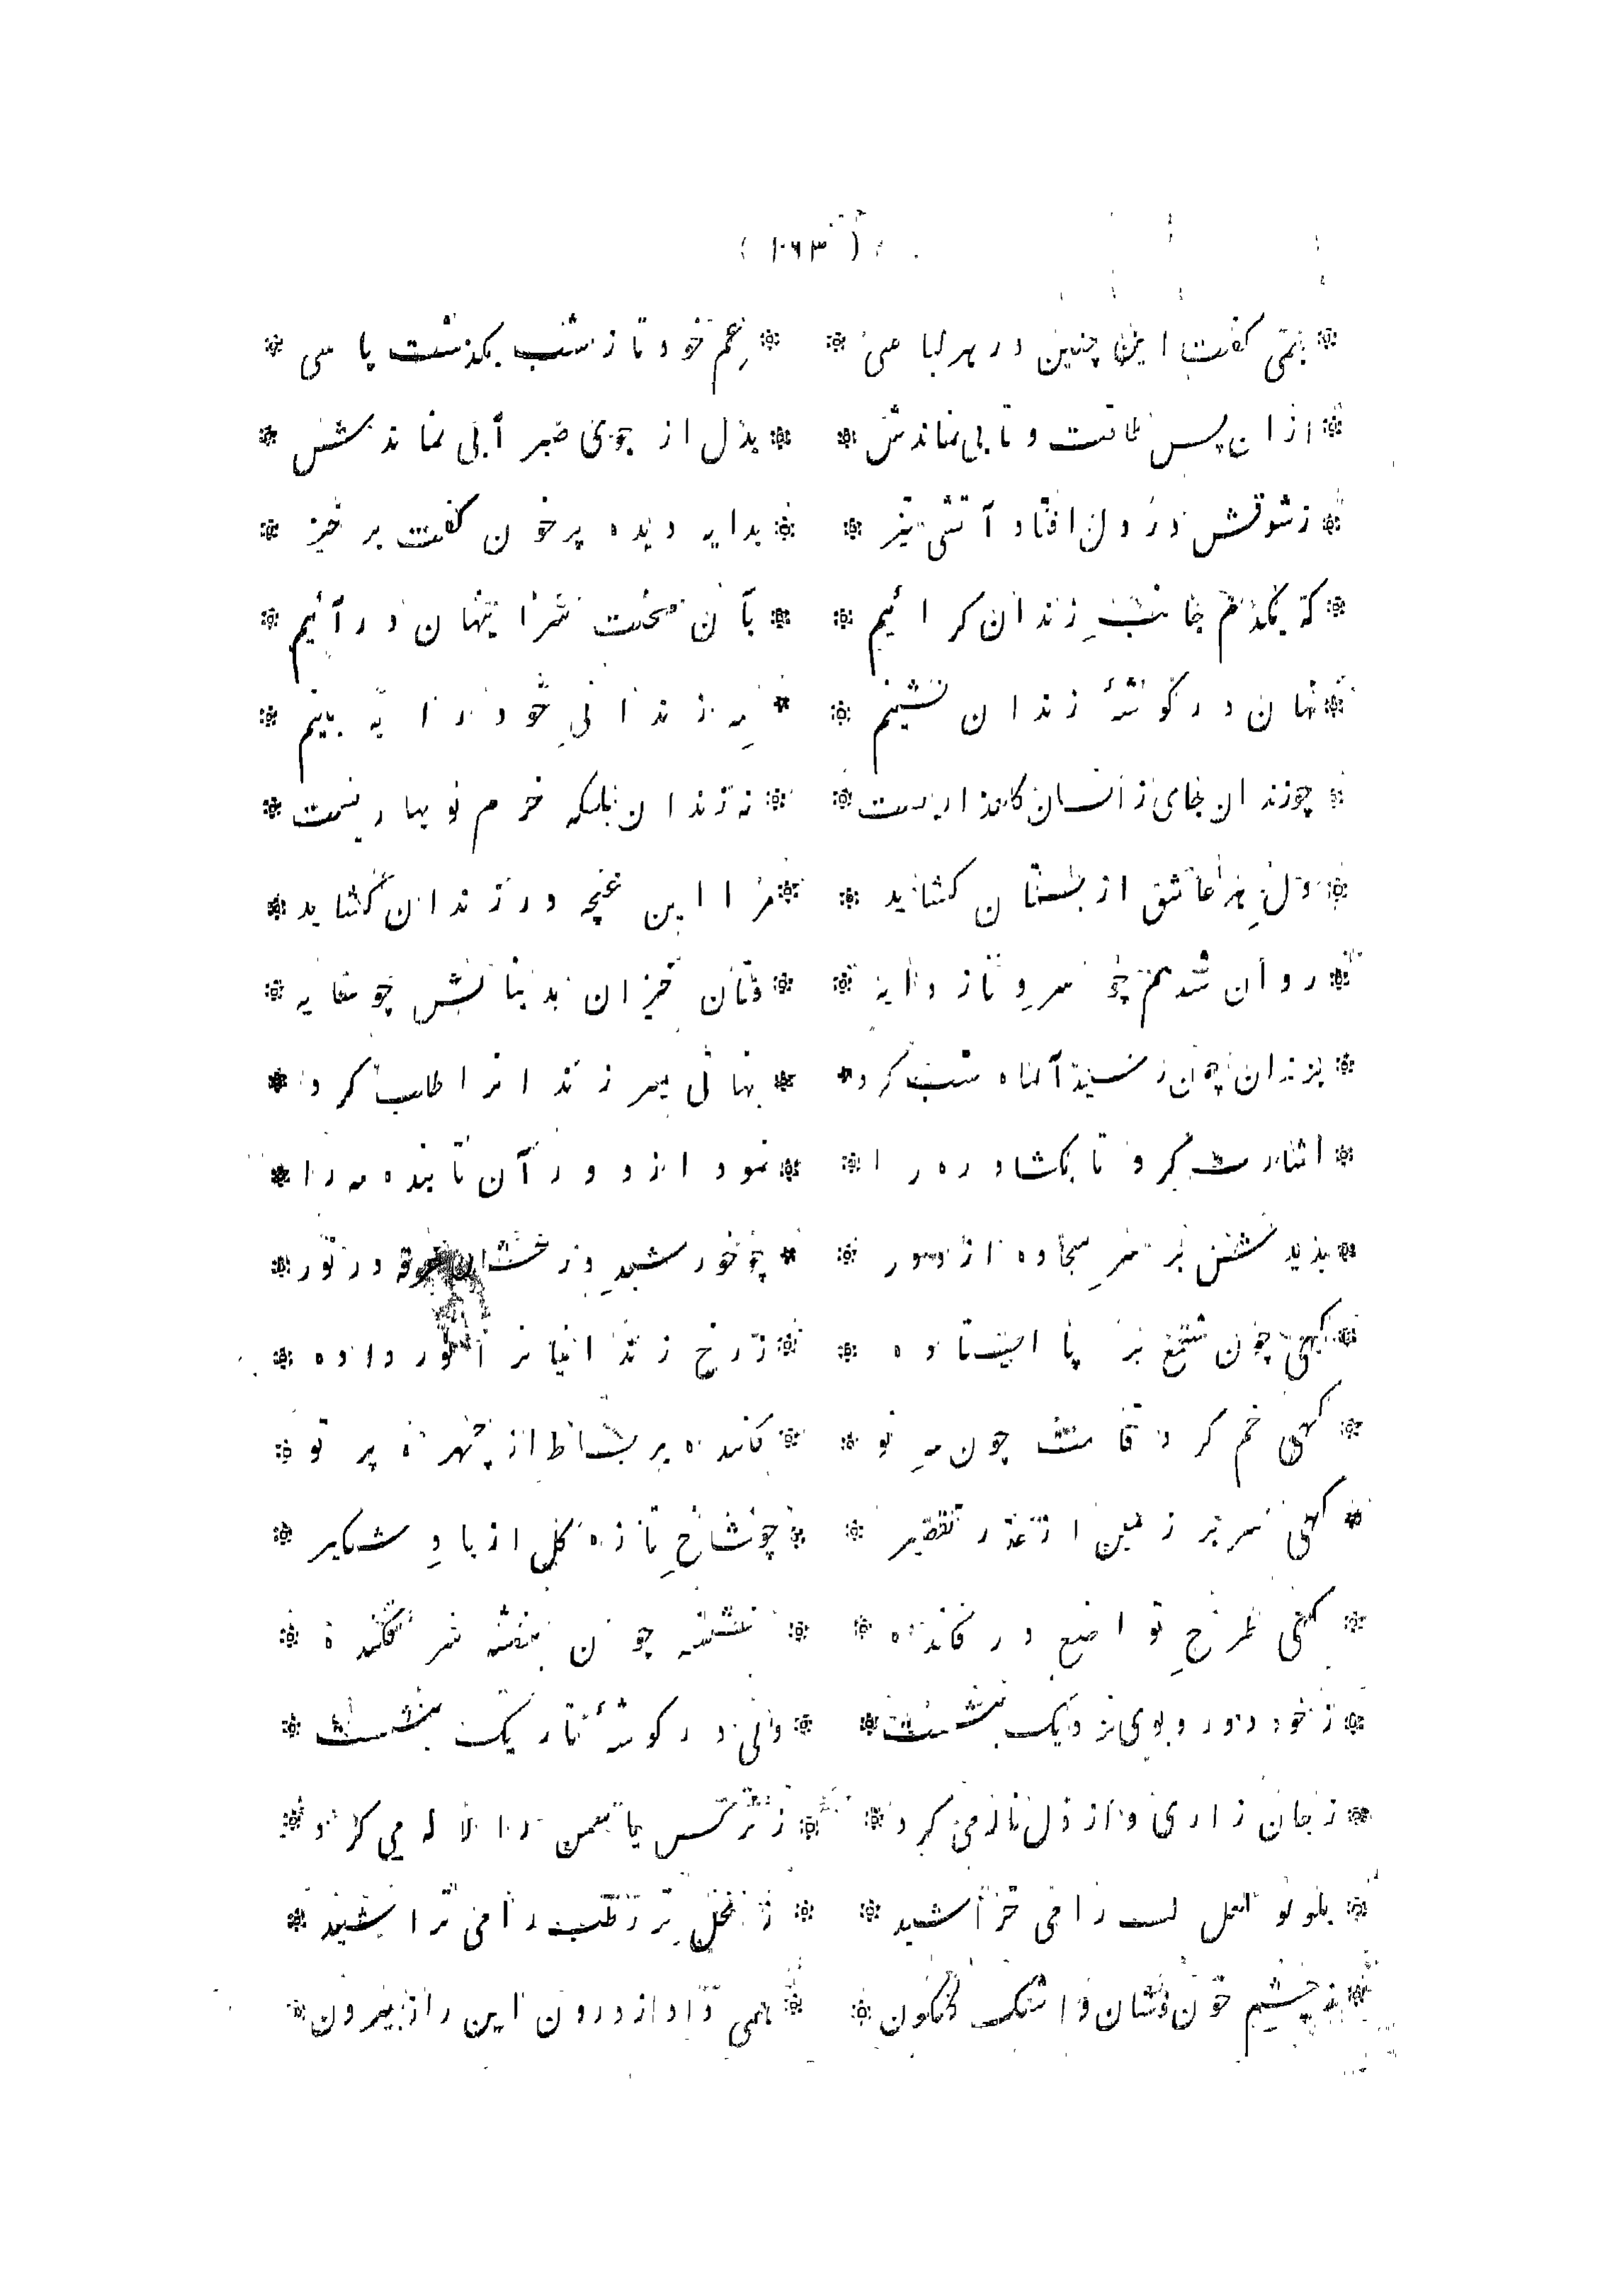 (۱۶۳)
* همی گفت این چنین در هر لباسی * * غم خود تا ز شب بگذشت پاسی *
* از ان پس طاقت و تابی نماندش * * بدل از جوی صبر آبی نماندش *
* ز شوقش در دل افتاد آتشی تیز * * بدایه دیده پرخون گفت برخیز *
* که یکدم جانب زندان گرائیم * * بآن محنت سرا پنهان درآئیم *
* نهان در گوشۀ زندان نشینم * * مه زندانی خود را به بینم *
* چو زندان جای ز انسان گلعذاریست * * نه زندان بلکه خرم نوبهاریست *
* دل هر عاشق از بستان کشاید * * مرا این غنچه در زندان کشاید *
* روان شد همچو سرو ناز دایه * * فتان خیزان بدنبالش چو سایه *
* بزندان چون رسید آن ماه شبگرد * * نهانی میر زندانرا طلب کرد *
* اشارت کرد تا بکشاد در را * * نمود از دور آن تابنده مه را *
* بدیدش بر سر سجاده از دور * * چو خورشید درخشان غرقه در نور *
* گهی چون شمع بر پا ایستاده * * ز رخ زندانیانرا نور داده *
* گهی خم کرده قامت چون مه نو * * فکنده بر بساط از چهره پرتو *
* گهی سر بر زمین از عذر تقصیر * * چو شاخ تازه گل از باد شبگیر *
* گهی طرح تواضع در فکنده * * نشسته چون بنفشه سر فکنده *
* ز خود دور و بوی نزدیک بنشست * * ولی در گوشۀ تاریک بنشست *
* ز جان زاری و از دل ناله می کرد * * ز نرگس یاسمن را لاله می کرد *
* بلولو لعل لب را می خراشید * * ز نخل تر رطب را می تراشید *
* به چشم خون فشان و اشک گلگون * * همی داد از درون این راز بیرون *